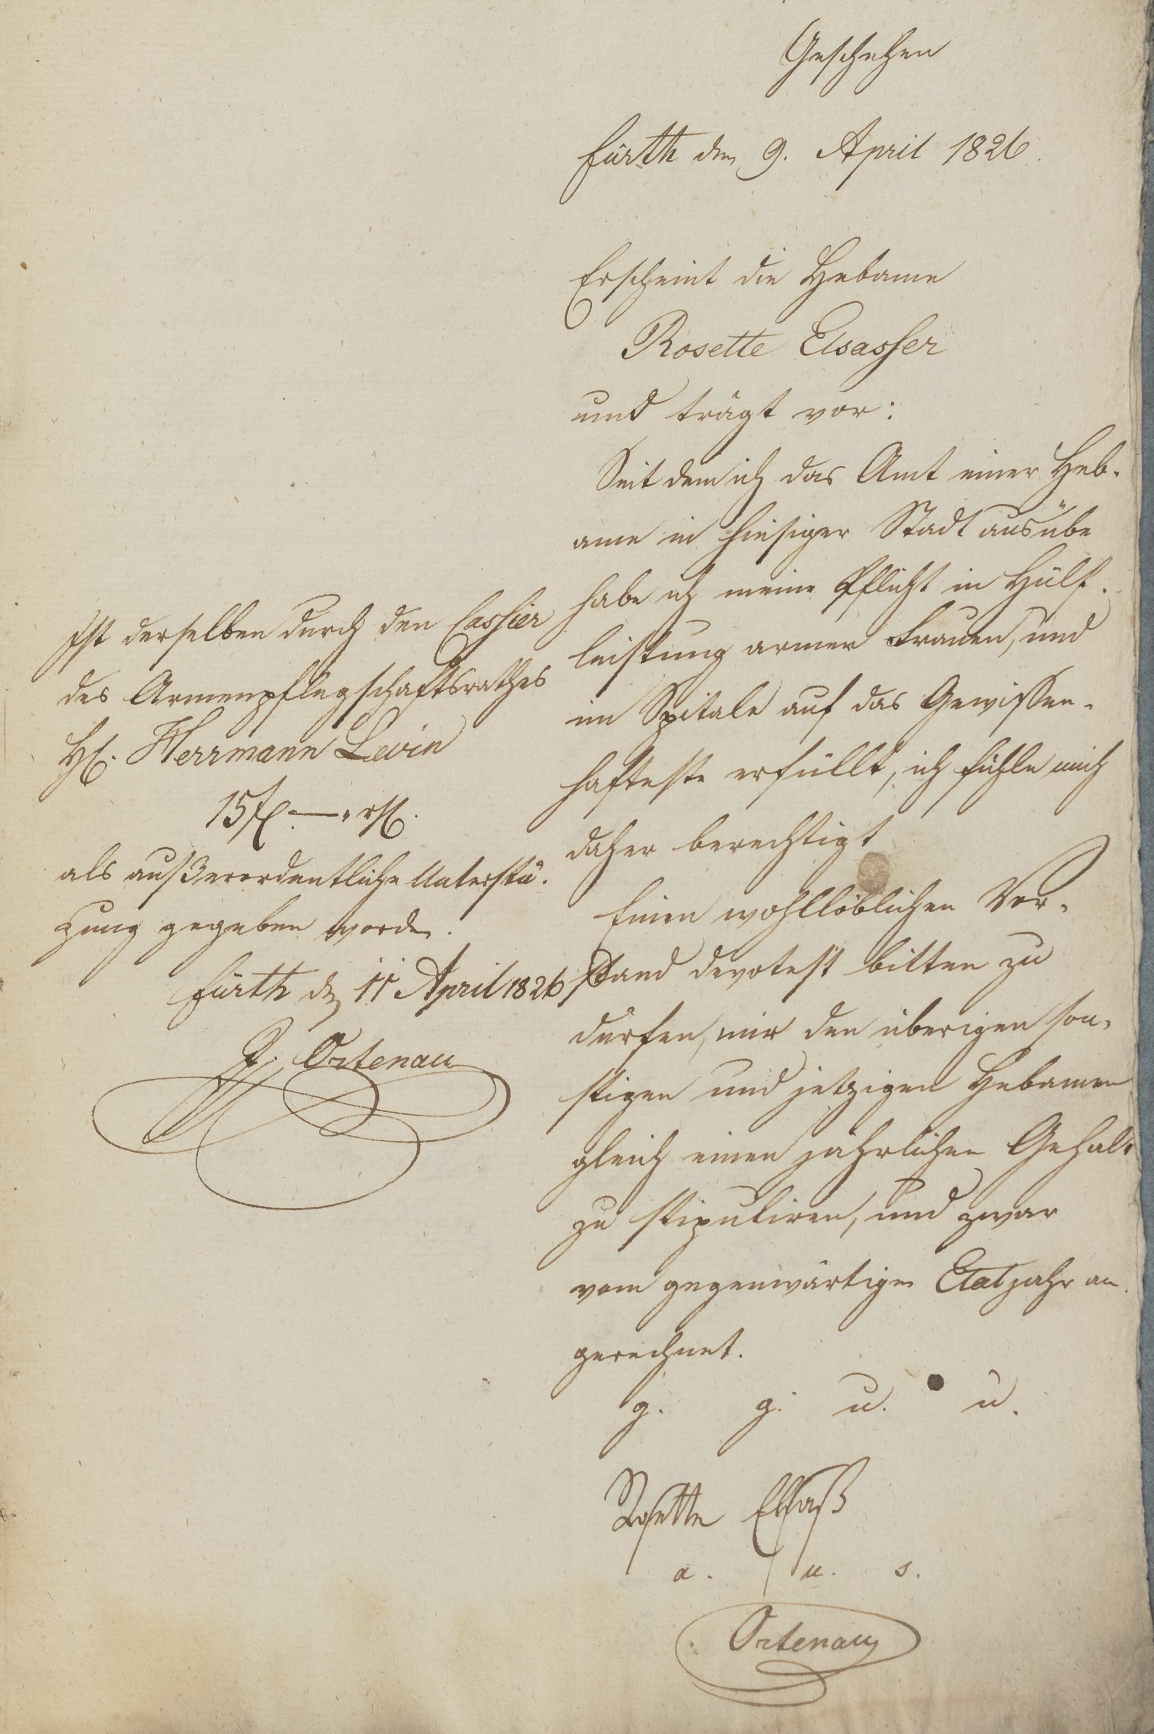 Geschehen
Fürth den 9. April 1826.
Erscheint die Hebame
Rosette Elsasser
und trägt vor:
Seit dem ich das Amt einer Heb-
ame in hiesiger Stadt ausübe
habe ich meine Pflicht in Hülf-
leistung armer Frauen, und
im Spitale auf das Gewissen-
hafteste erfüllt, ich fühle mich
daher berechtigt
Einen wohllöblichen Vor-
stand devotest bitten zu
dürfen, mir den überigen son-
stigen und jetzigen Hebamen
gleich einen jährlichen Gehalt
zu stipuliren, und zwar
vom gegenwärtigen Etatjahr an
gerechnet.
g. g. u. u.
Rosette Elsaß
a. u. s.
Ortenau
Ist derselben durch den Cassier
des Armenpflegschaftsrathes
H. Herrmann Levin
15 f. — x.
als außerordentliche Unterstü-
zung gegeben worden.
Fürth den 11 April 1826
J. Ortenau